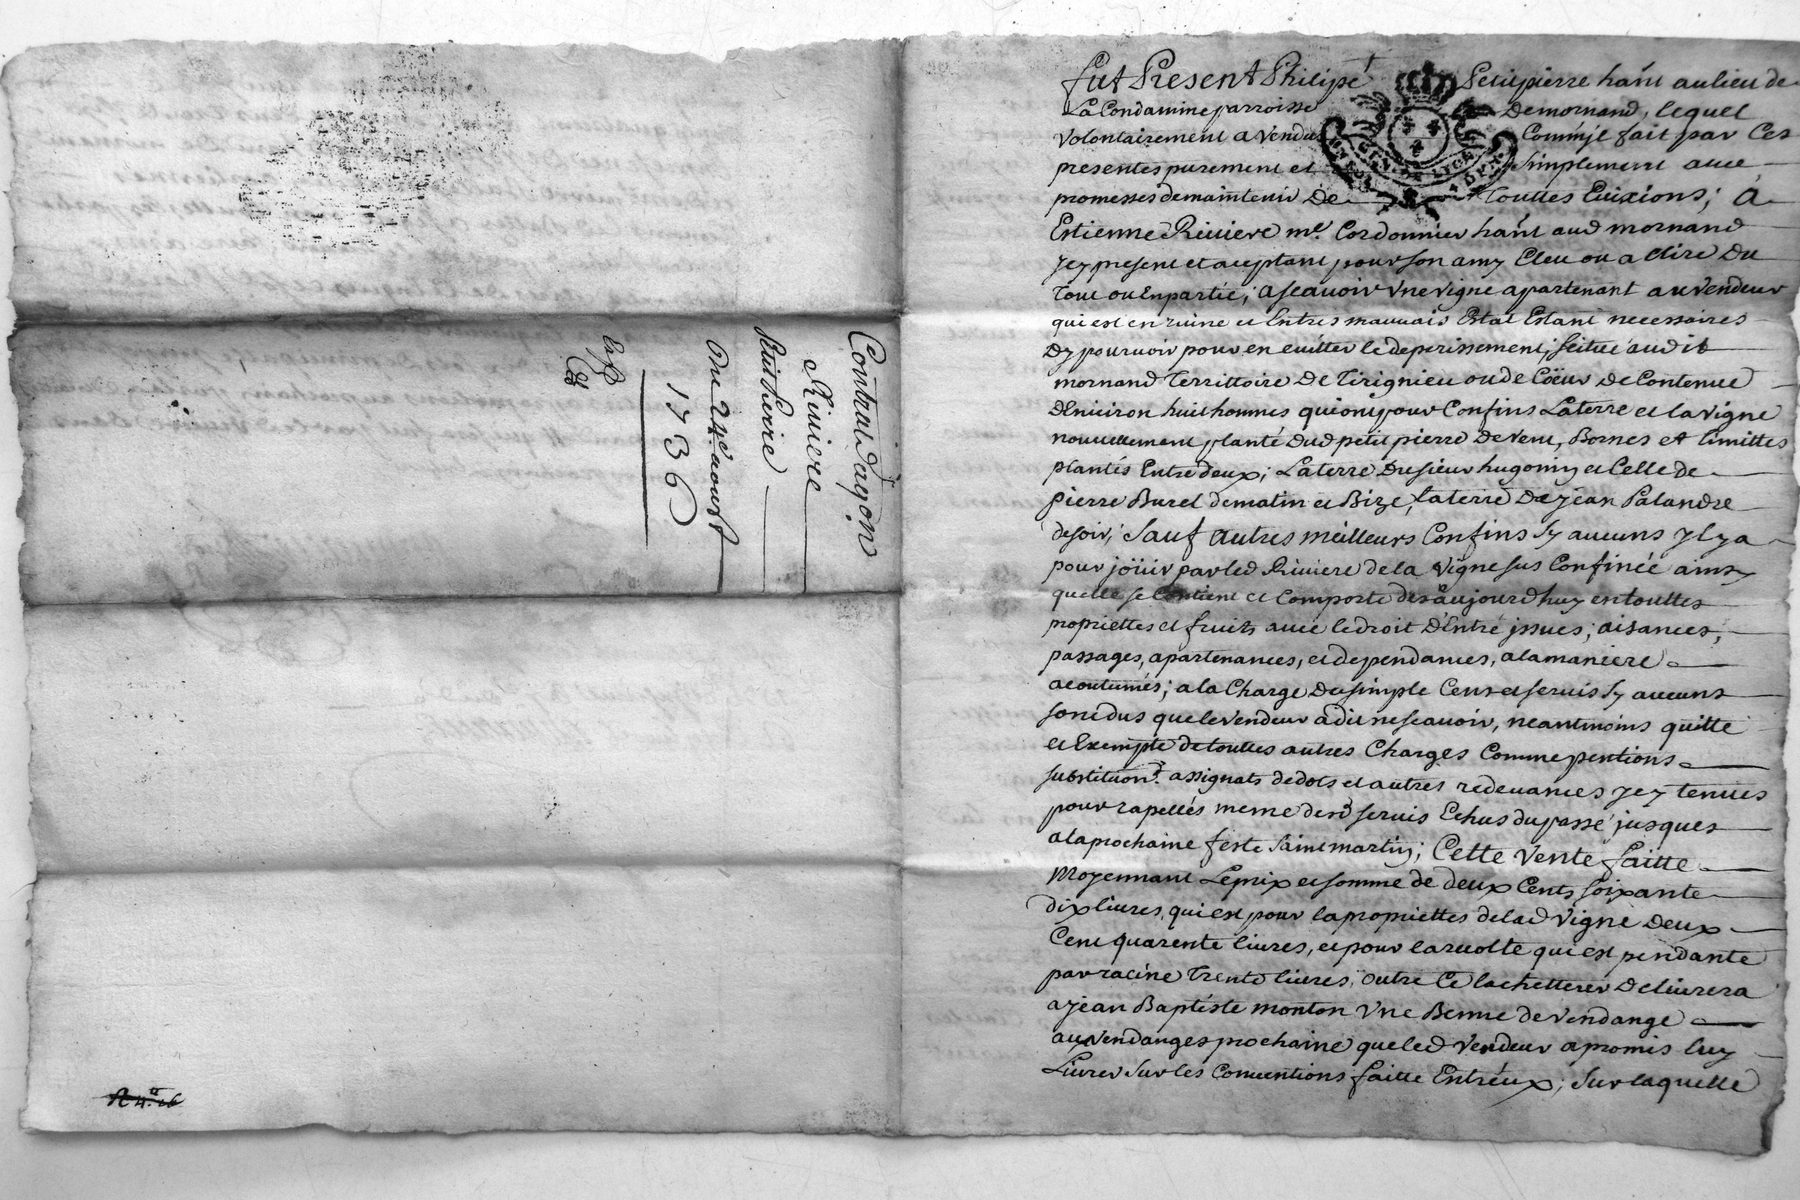 Contract d'aqon
Riviere
Du 24e aoust
1736
fut Present Philipe Petitpierre hant au lieu de
La Condamine parroisse De mornand, lequel
volontairement a vendu Comm'jl fait par Ces
presentes purement et simplement avec
promesses de maintenir De touttes Evixions; A
Estienne Riviere me. Cordonnier hant aud mornand
jcy present et aceptant pour son amy Eleu ou a Elire Du
Tout ou En partie; ascavoir Une vigne apartenant au vendeur
qui est en ruine et En tres mauvais Estat Estant necessaires
Dy pourvoir pour en evitter le deperissement; scitué audit
mornand Territtoire De Tirignieu ou de Cöeur De Contenue
D'Environ huit hommes qui ont pour Confins La terre et la vigne
nouvellement planté dud petit pierre De vent, Bornes et limittes
plantés Entre deux; La terre Du sieur hugonin et Celle de
pierre Burel de matin et Bize, la terre De jean Palandre
de soir, Sauf autres meilleurs Confins sy aucuns jl y a
pour joüir par led Riviere de la vigne sus Confinée ainsy
quelle se Contient et Comporte des aujourdhuy en touttes
propriettes et fruits avec le droit D'Entré jssues; aisances,
passages, apartenances, et dependances, a la maniere
acoutumés; a la Charge Du simple Cens et servis sy aucuns
sont dus que le vendeur a dit ne scavoir, neantmoins quitte
et Exempte de touttes autres Charges Comme pentions
substituons. assignats de dots et autres redevances jcy tenues
pour rapellés meme desd servis Echus du passé jusques
a la prochaine feste saint martin; Cette vente faitte
Moyennant Le prix et somme de deux Cents soixante
dix livres, qui est pour la propriettes de lad vigne Deux
Cent quarente livres, et pour la recolte qui est pendante
par racine Trente livres; outre Ce lachetterer Delivrera
a jean Baptiste monton Une Benne de vendange
au vendanges prochaine que led vendeur a promis luy
Livrer sur les Conventions faitte Entreux; sur laquelle